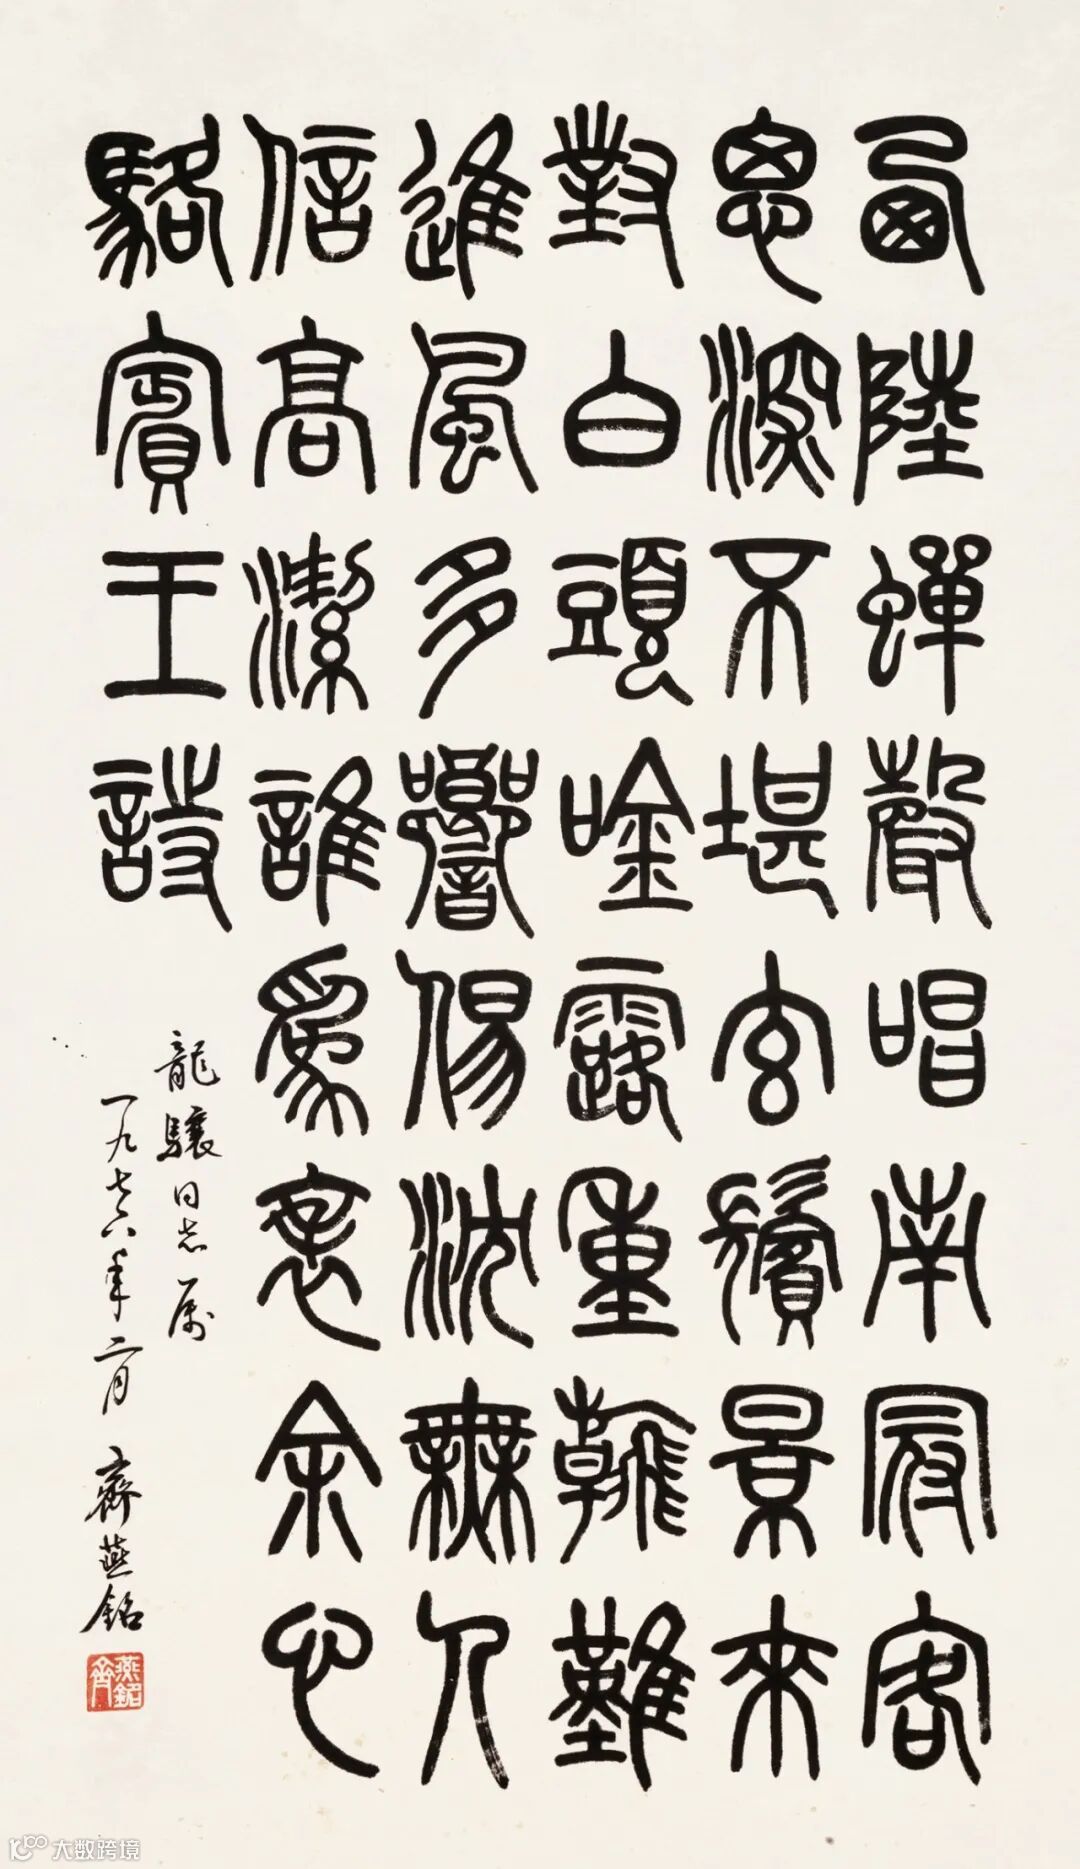 西陸蟬聲唱南冠客
思深不堪玄鬢景來
對白頭唫露重飛難
進風多響㑥沈無人
信高潔誰爲表余心
駱賓王詩
龍驤同志属
一九七六年二月 齊燕銘
燕銘
齊
大数跨境